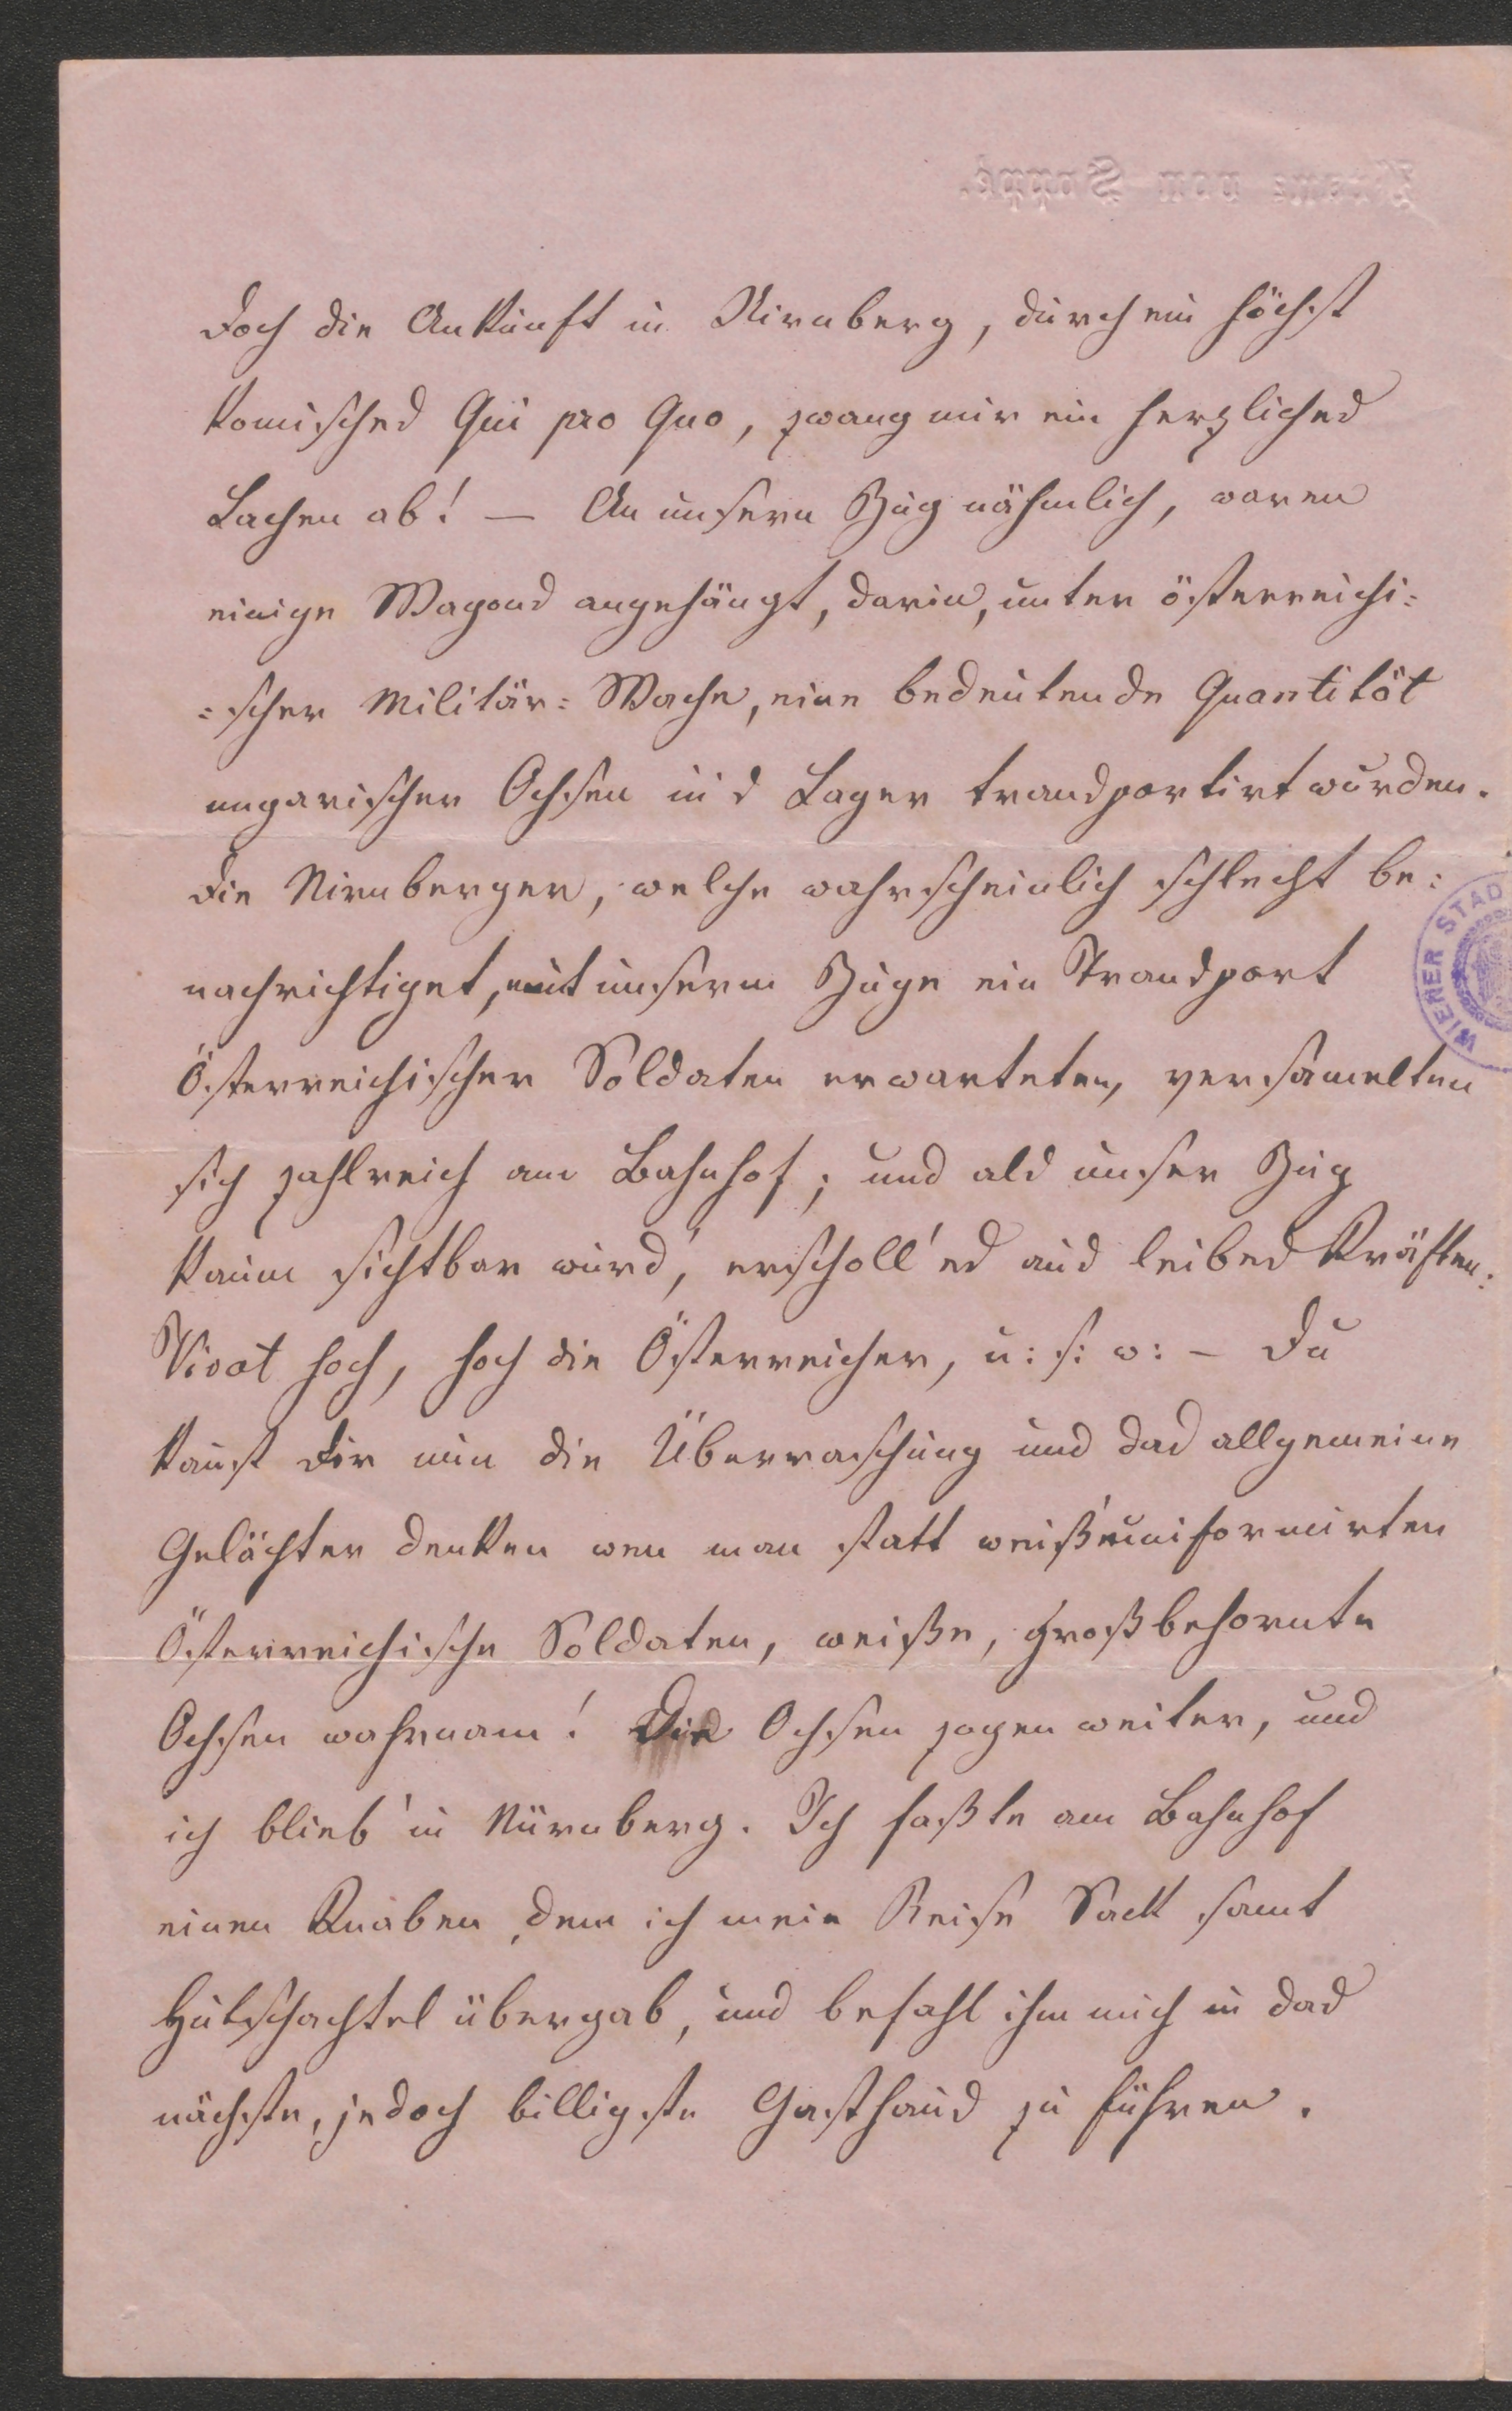 Doch die Ankunft in Nirnberg, durch ein höchst
komisches Qui pro Quo, zwang mir ein herzliches
Lachen ab! — An unsern Zug nähmlich, waren
einige Wagons angehängt, darin, unter österreichi=
=scher Militär=Wache, eine bedeutende Quantität
ungarischer Ochsen in's Lager transportirt wurden.
Die Nirnberger, welche wahrscheinlich schlecht be=
nachrichtiget, mit unserm Zuge ein Transport
Österreichischer Soldaten erwarteten, versamelten
sich zahlreich am Bahnhof; und als unser Zug
kaum sichtbar wurd', erscholl' es aus leibes Kräften:
Vivat hoch, hoch die Österreicher, u: s: w: – Du
kanst Dir nun die Überraschung und das allgemeine
Gelächter denken wen man statt weiß'uniformirten
Österreichische Soldaten, weiße, großbehornte
Ochsen wahrnam! Die Ochsen zogen weiter, und
ich blieb' in Nürnberg. Ich faßte am Bahnhof
einen Knaben, dem ich mein Reise Sack samt
Hutschachtel übergab, und befahl ihm mich in das
nächste, jedoch billigste Gasthaus zu führen.
WIENER STAD
von Suppé.